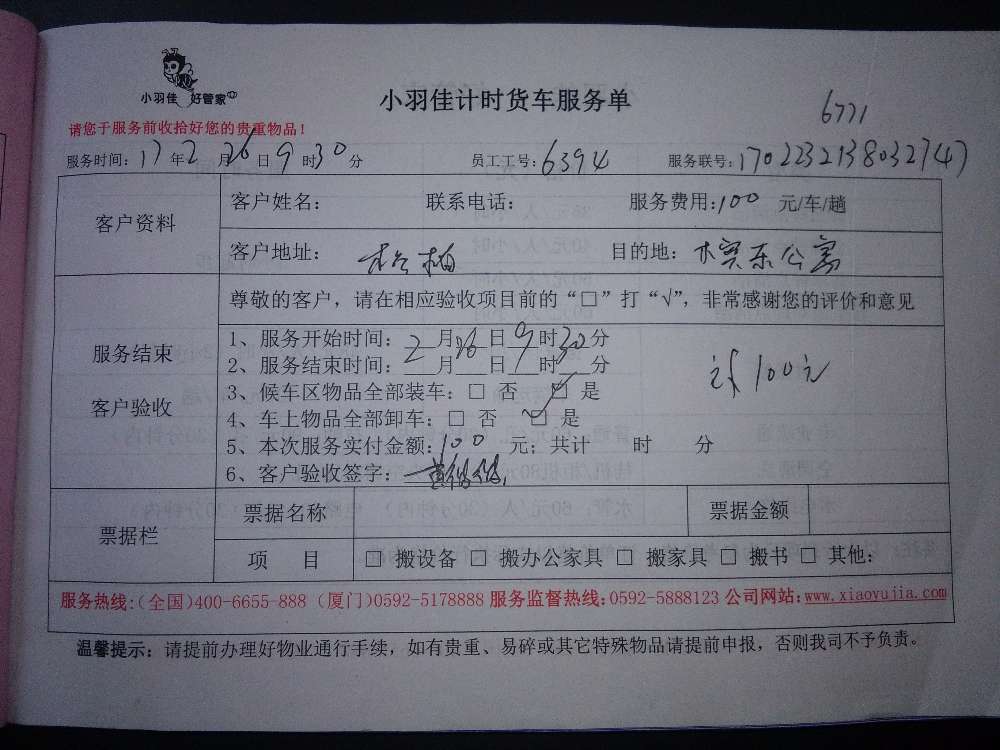 小羽佳 好管家
小羽佳计时货车服务单
6771
请您于服务前收拾好您的贵重物品！
服务时间：17年2月26日9时30分 员工工号：6394 服务联号：1702232138032747
客户资料
客户姓名： 联系电话： 服务费用：100 元/车/趟
客户地址： 目的地：
公寓
尊敬的客户，请在相应验收项目前的“□”打“√”，非常感谢您的评价和意见
服务结束
客户验收
1、服务开始时间：2月26日9时30分
2、服务结束时间：__月__日__时__分
3、候车区物品全部装车：□ 否 □ 是
4、车上物品全部卸车：□ 否 □ 是
5、本次服务实付金额：100 元；共计 时 分
6、客户验收签字：
100元
票据栏
票据名称 票据金额
项 目 □ 搬设备 □ 搬办公家具 □ 搬家具 □ 搬书 □ 其他：
服务热线：（全国）400-6655-888（厦门）0592-5178888 服务监督热线：0592-5888123 公司网站：www.xiaoyujia.com
温馨提示：请提前办理好物业通行手续，如有贵重、易碎或其它特殊物品请提前申报，否则我司不予负责。